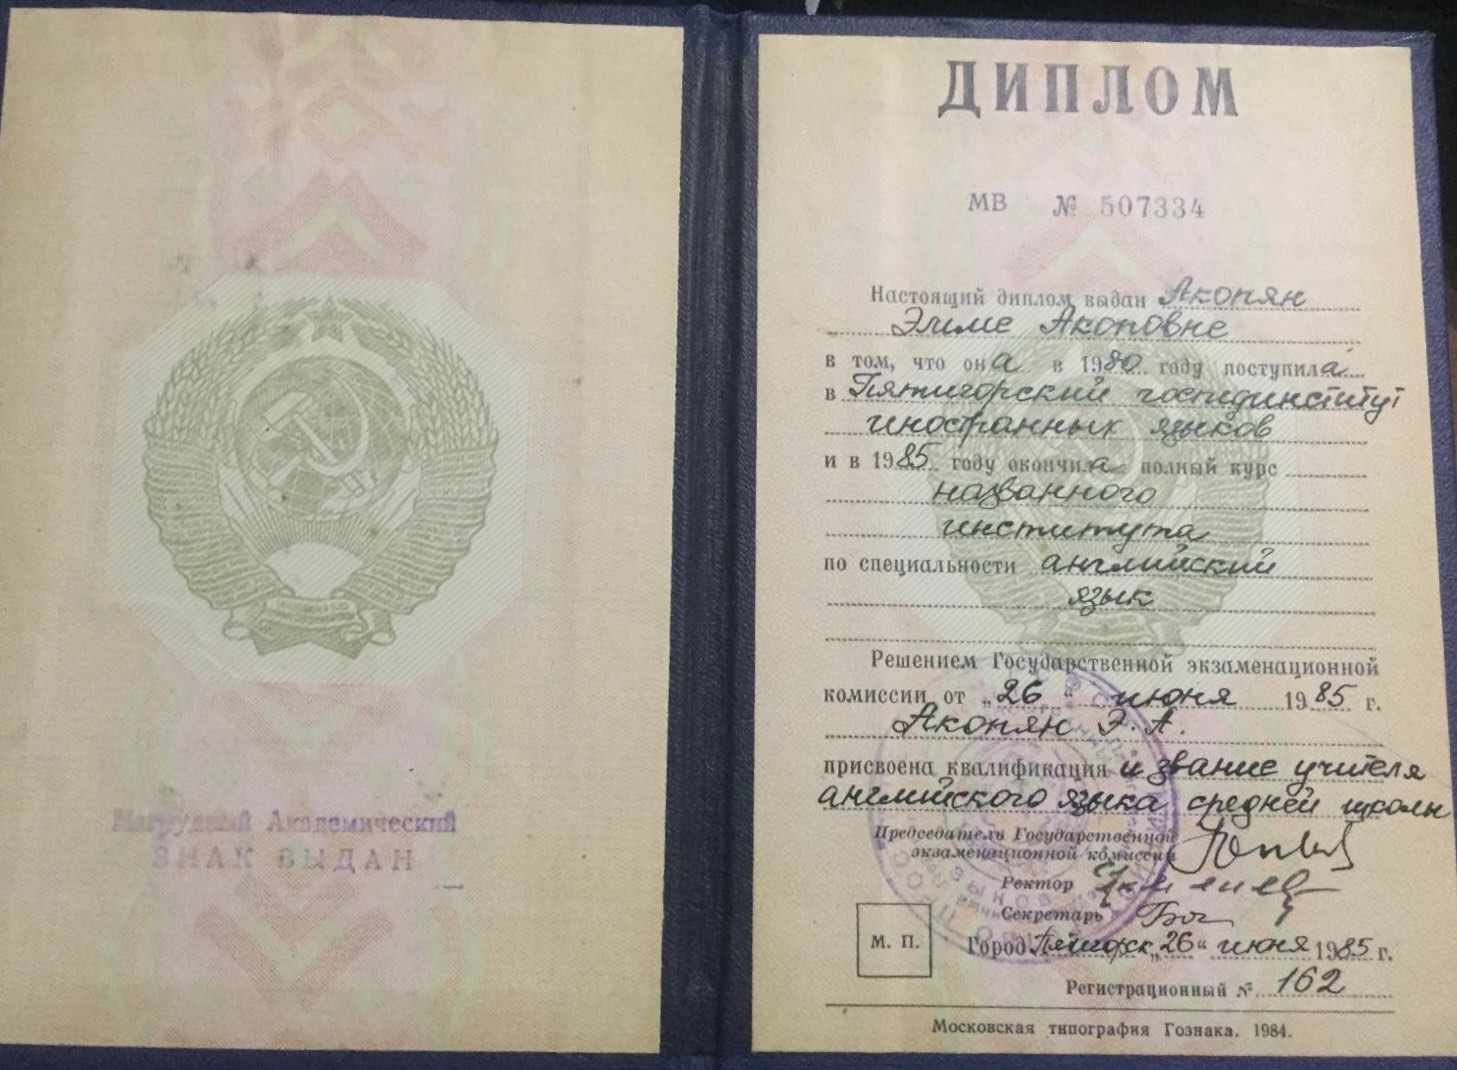 Нагрудный Академический
ЗНАК ВЫДАН
ДИПЛОМ
МВ № 507334
Настоящий диплом выдан Акопян
Элиме Акоповне
в том, что она в 1980 году поступила
в Пятигорский госпединститут
иностранных языков
и в 1985 году окончила полный курс
названного
института
по специальности английский
язык
Решением Государственной экзаменационной
комиссии от „26“ июня 1985 г.
Акопян Э. А.
присвоена квалификация и звание учителя
английского языка средней школы
Председатель Государственной
экзаменационной комиссии
Ректор
Секретарь
М. П.
Город Пятигорск „26“ июня 1985 г.
Регистрационный № 162
Московская типография Гознака. 1984.